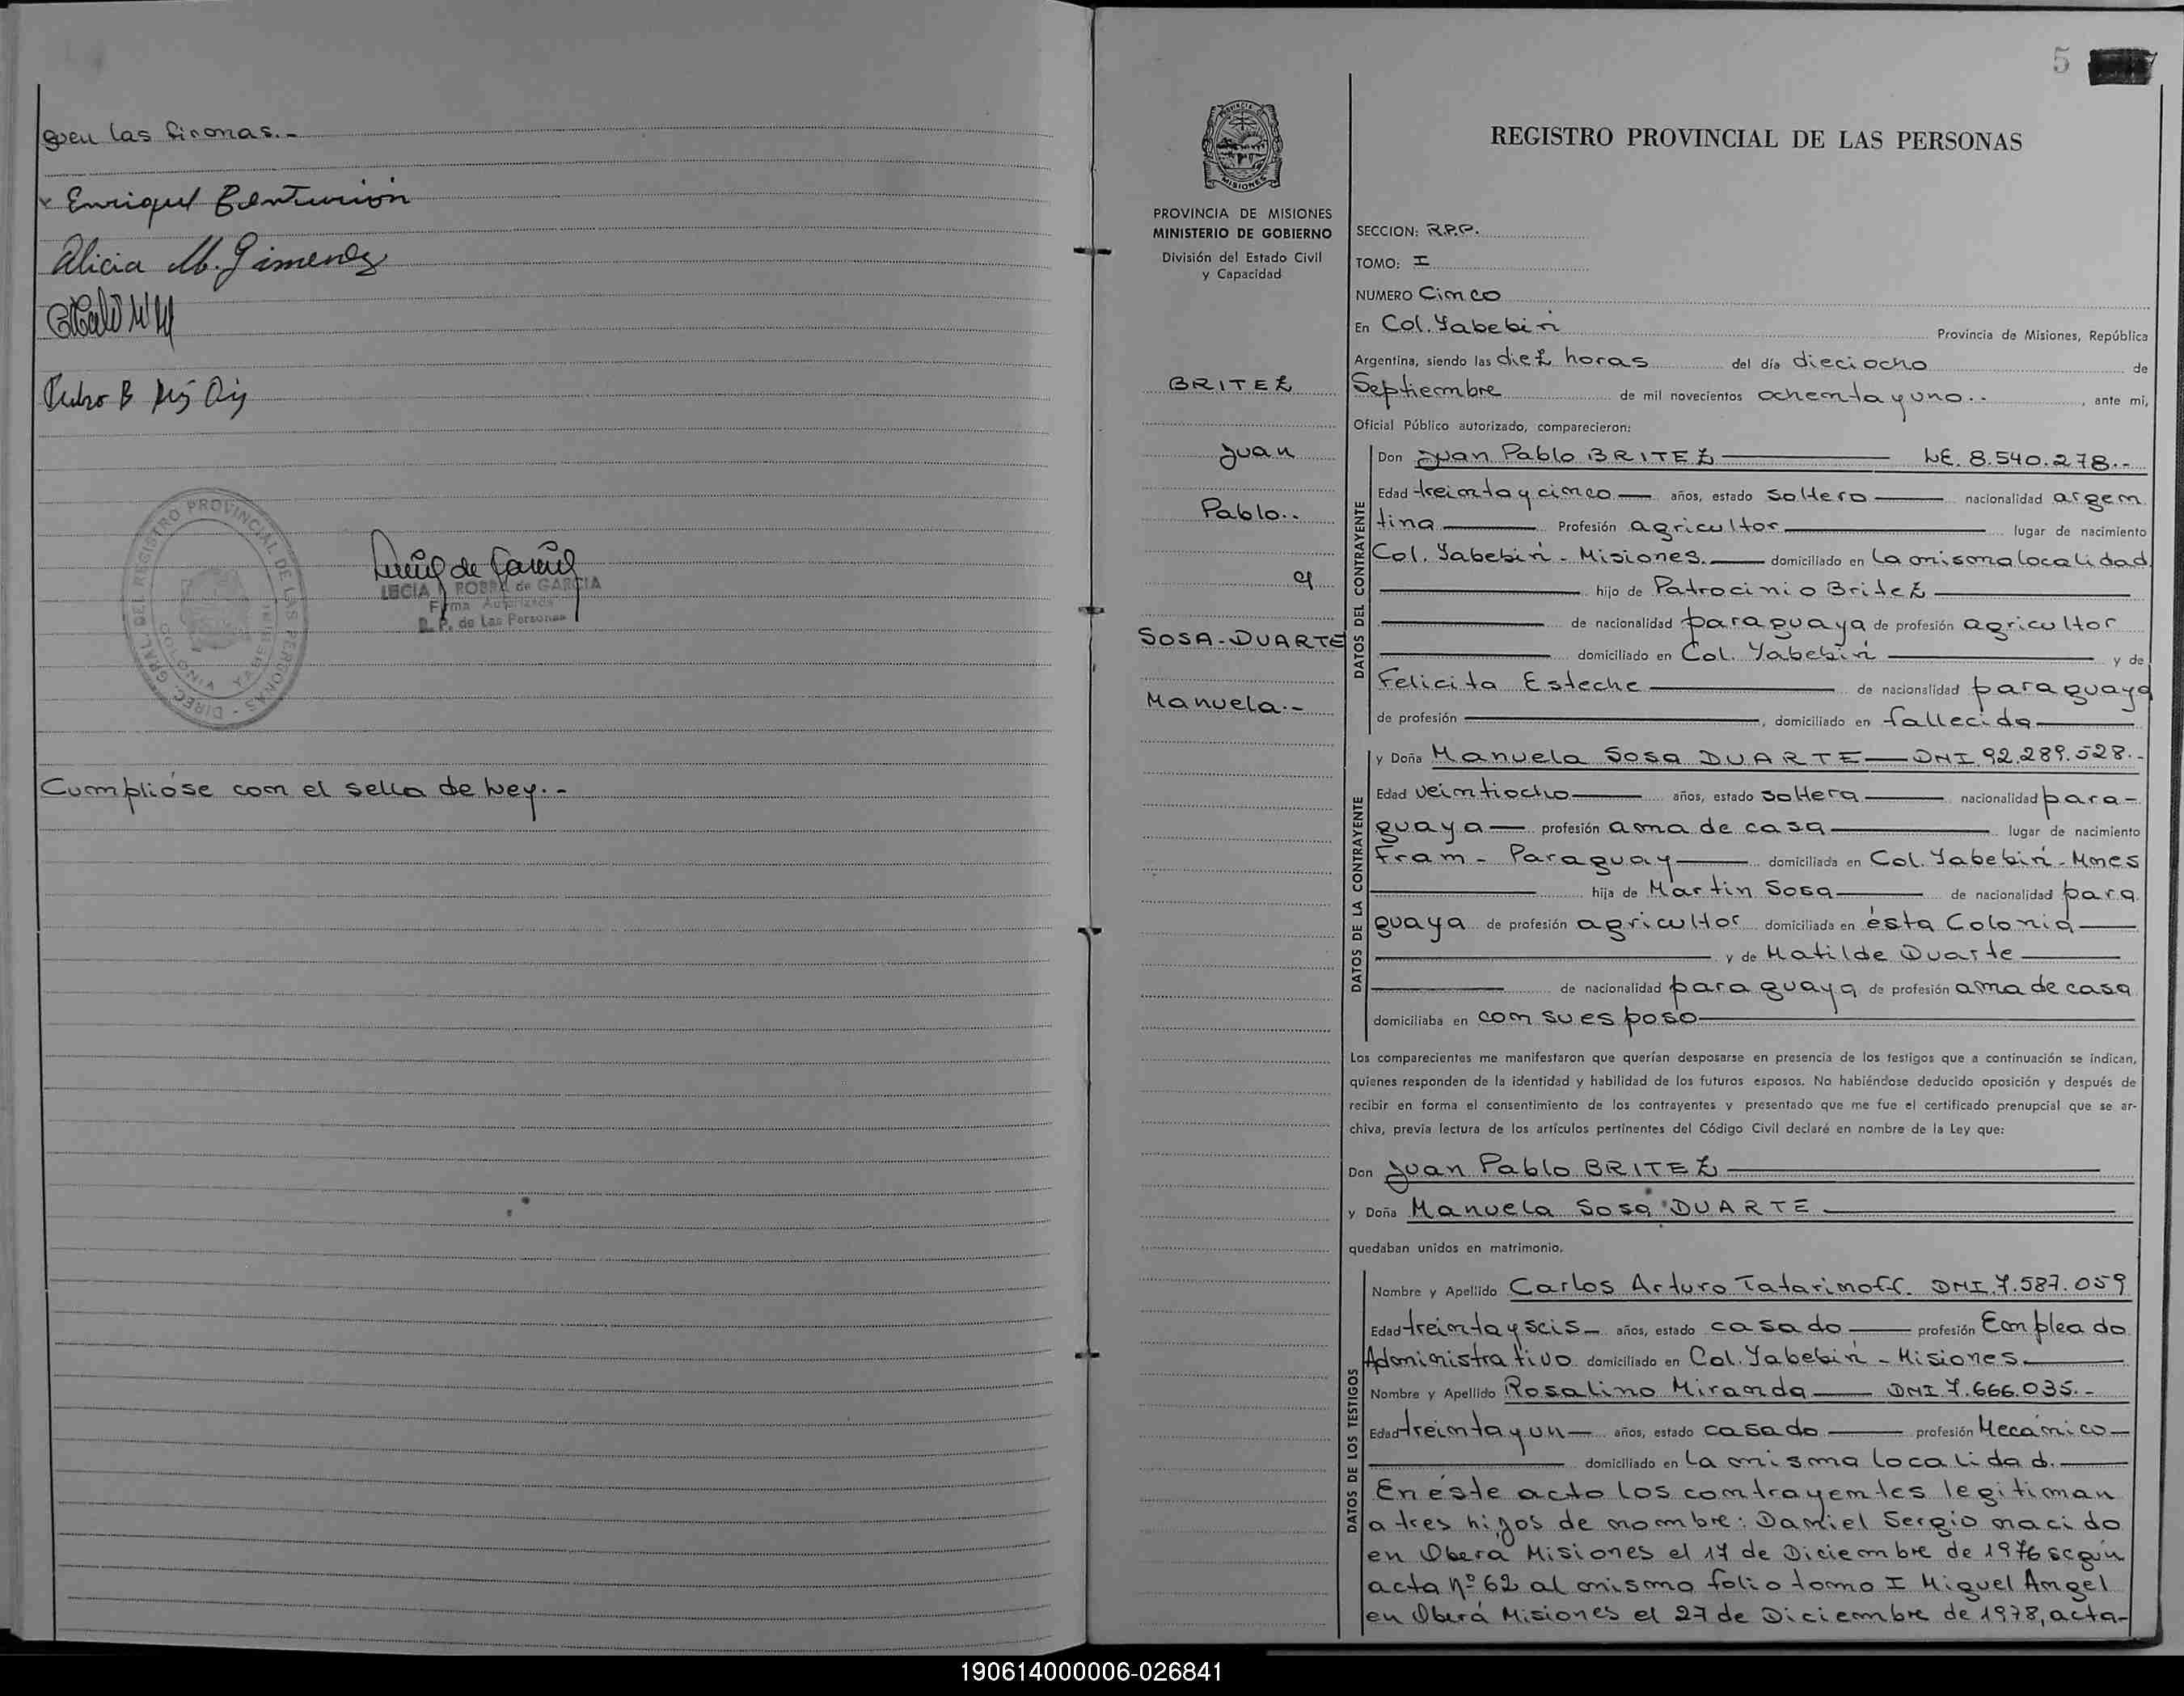 guen las firmas.-
Enrique Benturión
Alicia M. Gimenez
DIREC. GRAL. DEL REGISTRO PROVINCIAL DE LAS PERSONAS
COLONIA YABEBIRI
de García
LECIA ROBRA de GARCIA
Firma Autorizada
R. P. de Las Personas
Cumplióse con el sello de Ley.-
5
PROVINCIA DE MISIONES
MINISTERIO DE GOBIERNO
División del Estado Civil
y Capacidad
BRITEZ
Juan
Pablo..
y
SOSA-DUARTE
Manuela.-
REGISTRO PROVINCIAL DE LAS PERSONAS
SECCION: R.P.P.
TOMO: I
NUMERO Cinco
En Col. Yabebiri Provincia de Misiones, República
Argentina, siendo las diez horas del día dieciocho de
Septiembre de mil novecientos ochenta y uno.. , ante mi,
Oficial Público autorizado, comparecieron:
DATOS DEL CONTRAYENTE
Don Juan Pablo BRITEZ LE. 8.540.278.-
Edad treinta y cinco años, estado soltero nacionalidad argen
tina Profesión agricultor lugar de nacimiento
Col. Yabebirí - Misiones. domiciliado en la misma localidad
hijo de Patrocinio Britez
de nacionalidad paraguaya de profesión agricultor
domiciliado en Col. Yabebirí y de
Felicita Esteche de nacionalidad paraguaya
de profesión , domiciliado en fallecida
DATOS DE LA CONTRAYENTE
y Doña Manuela Sosa DUARTE DNI. 92.289.528.-
Edad veintiocho años, estado soltera nacionalidad para-
guaya profesión ama de casa lugar de nacimiento
Fram - Paraguay domiciliada en Col. Yabebirí - Mnes
hija de Martin Sosa de nacionalidad para
guaya de profesión agricultor domiciliada en ésta Colonia
y de Matilde Duarte
de nacionalidad paraguaya de profesión ama de casa
domiciliaba en con su esposo
Los comparecientes me manifestaron que querían desposarse en presencia de los testigos que a continuación se indican,
quienes responden de la identidad y habilidad de los futuros esposos. No habiéndose deducido oposición y después de
recibir en forma el consentimiento de los contrayentes y presentado que me fue el certificado prenupcial que se ar-
chiva, previa lectura de los artículos pertinentes del Código Civil declaré en nombre de la Ley que:
Don Juan Pablo BRITEZ
y Doña Manuela Sosa DUARTE
quedaban unidos en matrimonio.
DATOS DE LOS TESTIGOS
Nombre y Apellido Carlos Arturo Tatarinoff. DNI. 7.587.059
Edad treinta y seis años, estado casado profesión Empleado
Administrativo domiciliado en Col. Yabebirí - Misiones.
Nombre y Apellido Rosalino Miranda DNI 7.666.035.-
Edad treinta y un años, estado casado profesión Mecánico
domiciliado en la misma localidad.
En éste acto los contrayentes legitiman
a tres hijos de nombre: Daniel Sergio nacido
en Oberá Misiones el 17 de Diciembre de 1976 según
acta Nº 62 al mismo folio tomo I Miguel Angel
en Oberá Misiones el 27 de Diciembre de 1978, acta-
190614000006-026841